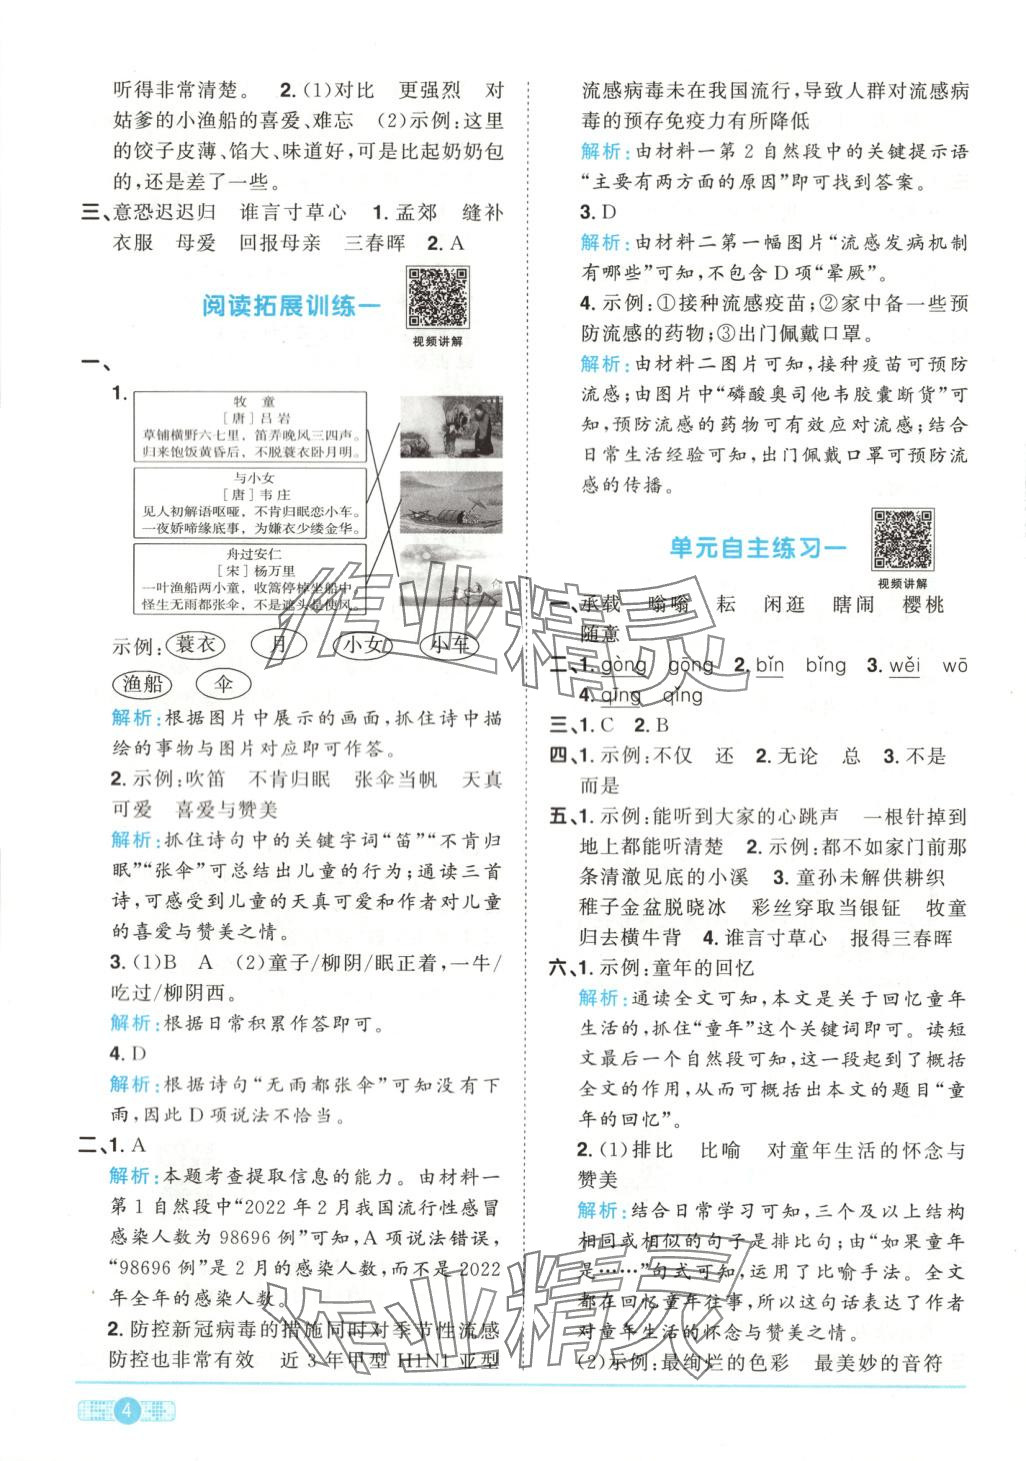 听得非常清楚。 2.(1)对比 更强烈 对
姑爹的小渔船的喜爱、难忘 (2)示例:这里
的饺子皮薄、馅大、味道好,可是比起奶奶包
的,还是差了一些。
三、意恐迟迟归 谁言寸草心 1.孟郊 缝补
衣服 母爱 回报母亲 三春晖 2.A
阅读拓展训练一
视频讲解
一、
1.
牧 童
[唐]吕岩
草铺横野六七里,笛弄晚风三四声。
归来饱饭黄昏后,不脱蓑衣卧月明。
与小女
[唐]韦庄
见人初解语呕哑,不肯归眠恋小车。
一夜娇啼缘底事,为嫌衣少缕金华。
舟过安仁
[宋]杨万里
一叶渔船两小童,收篙停棹坐船中。
怪生无雨都张伞,不是遮头是使风。
示例:蓑衣 月 小女 小车
渔船 伞
解析:根据图片中展示的画面,抓住诗中描
绘的事物与图片对应即可作答。
2.示例:吹笛 不肯归眠 张伞当帆 天真
可爱 喜爱与赞美
解析:抓住诗句中的关键字词“笛”“不肯归
眠”“张伞”可总结出儿童的行为;通读三首
诗,可感受到儿童的天真可爱和作者对儿童
的喜爱与赞美之情。
3.(1)B A (2)童子/柳阴/眠正着,一牛/
吃过/柳阴西。
解析:根据日常积累作答即可。
4.D
解析:根据诗句“无雨都张伞”可知没有下
雨,因此D项说法不恰当。
二、1.A
解析:本题考查提取信息的能力。由材料一
第1自然段中“2022年2月我国流行性感冒
感染人数为98696例”可知,A项说法错误,
“98696例”是2月的感染人数,而不是2022
年全年的感染人数。
2.防控新冠病毒的措施同时对季节性流感
防控也非常有效 近3年甲型H1N1亚型
流感病毒未在我国流行,导致人群对流感病
毒的预存免疫力有所降低
解析:由材料一第2自然段中的关键提示语
“主要有两方面的原因”即可找到答案。
3.D
解析:由材料二第一幅图片“流感发病机制
有哪些”可知,不包含D项“晕厥”。
4.示例:①接种流感疫苗;②家中备一些预
防流感的药物;③出门佩戴口罩。
解析:由材料二图片可知,接种疫苗可预防
流感;由图片中“磷酸奥司他韦胶囊断货”可
知,预防流感的药物可有效应对流感;结合
日常生活经验可知,出门佩戴口罩可预防流
感的传播。
单元自主练习一
视频讲解
一、承载 嗡嗡 耘 闲逛 瞎闹 樱桃
随意
二、1.gòng gōng 2.bīn bīng 3.wěi wō
4.qīng qǐng
三、1.C 2.B
四、1.示例:不仅 还 2.无论 总 3.不是
而是
五、1.示例:能听到大家的心跳声 一根针掉到
地上都能听清楚 2.示例:都不如家门前那
条清澈见底的小溪 3.童孙未解供耕织
稚子金盆脱晓冰 彩丝穿取当银钲 牧童
归去横牛背 4.谁言寸草心 报得三春晖
六、1.示例:童年的回忆
解析:通读全文可知,本文是关于回忆童年
生活的,抓住“童年”这个关键词即可。读短
文最后一个自然段可知,这一段起到了概括
全文的作用,从而可概括出本文的题目“童
年的回忆”。
2.(1)排比 比喻 对童年生活的怀念与
赞美
解析:结合日常学习可知,三个及以上结构
相同或相似的句子是排比句;由“如果童年
是……”句式可知,运用了比喻手法。全文
都在回忆童年往事,所以这句话表达了作者
对童年生活的怀念与赞美之情。
(2)示例:最绚烂的色彩 最美妙的音符
作业精灵
作业精灵
4